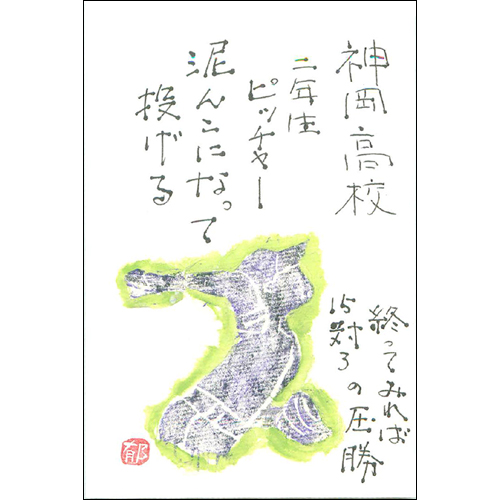 神岡高校
二年生
ピッチャー
泥んこになって
投げる
終ってみれば
15対3の圧勝
郁